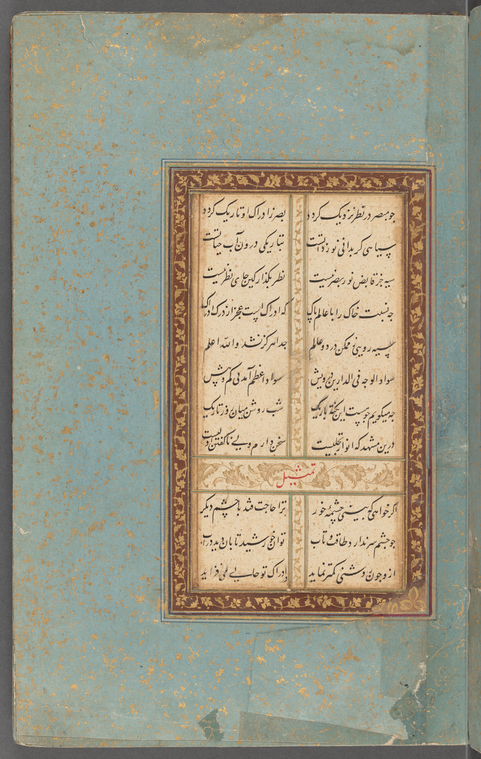 چو مبصر در نظر نزدیک کردد بصر ز ادراک او تاریک کردد
سیاهی کر بدانی نور ذاتست بتاریکی درون آب حیاتست
سیه جز قابض نور بصر نیست نظر بکذار کین جای نظر نیست
چه نسبت خاک را با عالم پاک که ادراک است عجز از درک ادراک
سیه رویی ز ممکن در دو عالم جدا هرکز نشد والله اعلم
سواد الوجه فی الدارین درویش سواد اعظم آمد بی کم و بیش
چه میکویم چو هست این نکته باریک شب روشن میان روز تاریک
درین مشهد که انوار تجلیست سخن دارم ولی ناکفتن اولیست
تمثیل
اکر خواهی که بینی چشمه خور ترا حاجت فتد با جسم دیکر
چو چشم سر ندارد طاقت و تاب توان خورشید تابان دید در آب
ازو چون روشنی کمتر نماید در ادراک تو حالی می فزاید